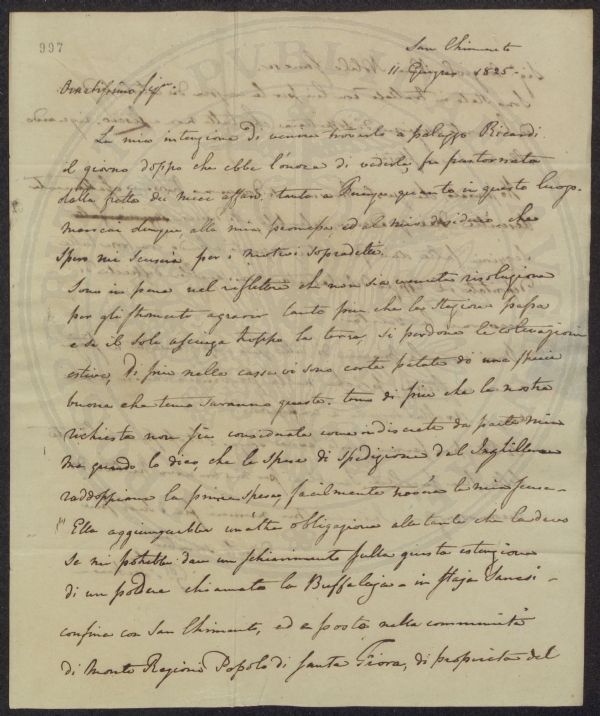 997
San Chimento
11 Giugno 1825
La mia intenzione di venire trovarla a palazzo Ricardi
il giorno doppo che ebbe l'onore di vederla, fu
dalla fretta dei miei affari, tanto a quanto in questo luogo.
mancai dunque alla mia promessa ed al mio desiderio che
spero mi scuserà per i motivi sopradetti.
Sono in pena nel riflettere che non sia venuta risoluzione
per gli stromenti agrari tanto più che la stagione passa
e se il sole asciuga troppo la terra, si perdono le coltivazioni
estive, Di più nella cassa vi sono certe patate di una specie
buona che temo saranno guaste. temo di più che la nostra
richiesta non sia considerata come indiscreta da parte mia
ma quando le dico che le spese di spedizione dal Inghilterra
raddoppiano la prima spesa, facilmente troverà la mia scusa
Ella aggiungerebbe un altra obligazione alle tante che le devo
se mi potrebbe dare un schiarimento sulla giusta estenzione
di un podere chiamato la Buffalaja in staja Sanesi
confina con San Chimento, ed è posto nella communità
di Monte Regioni Popolo di Santa Fiora, di proprietà del